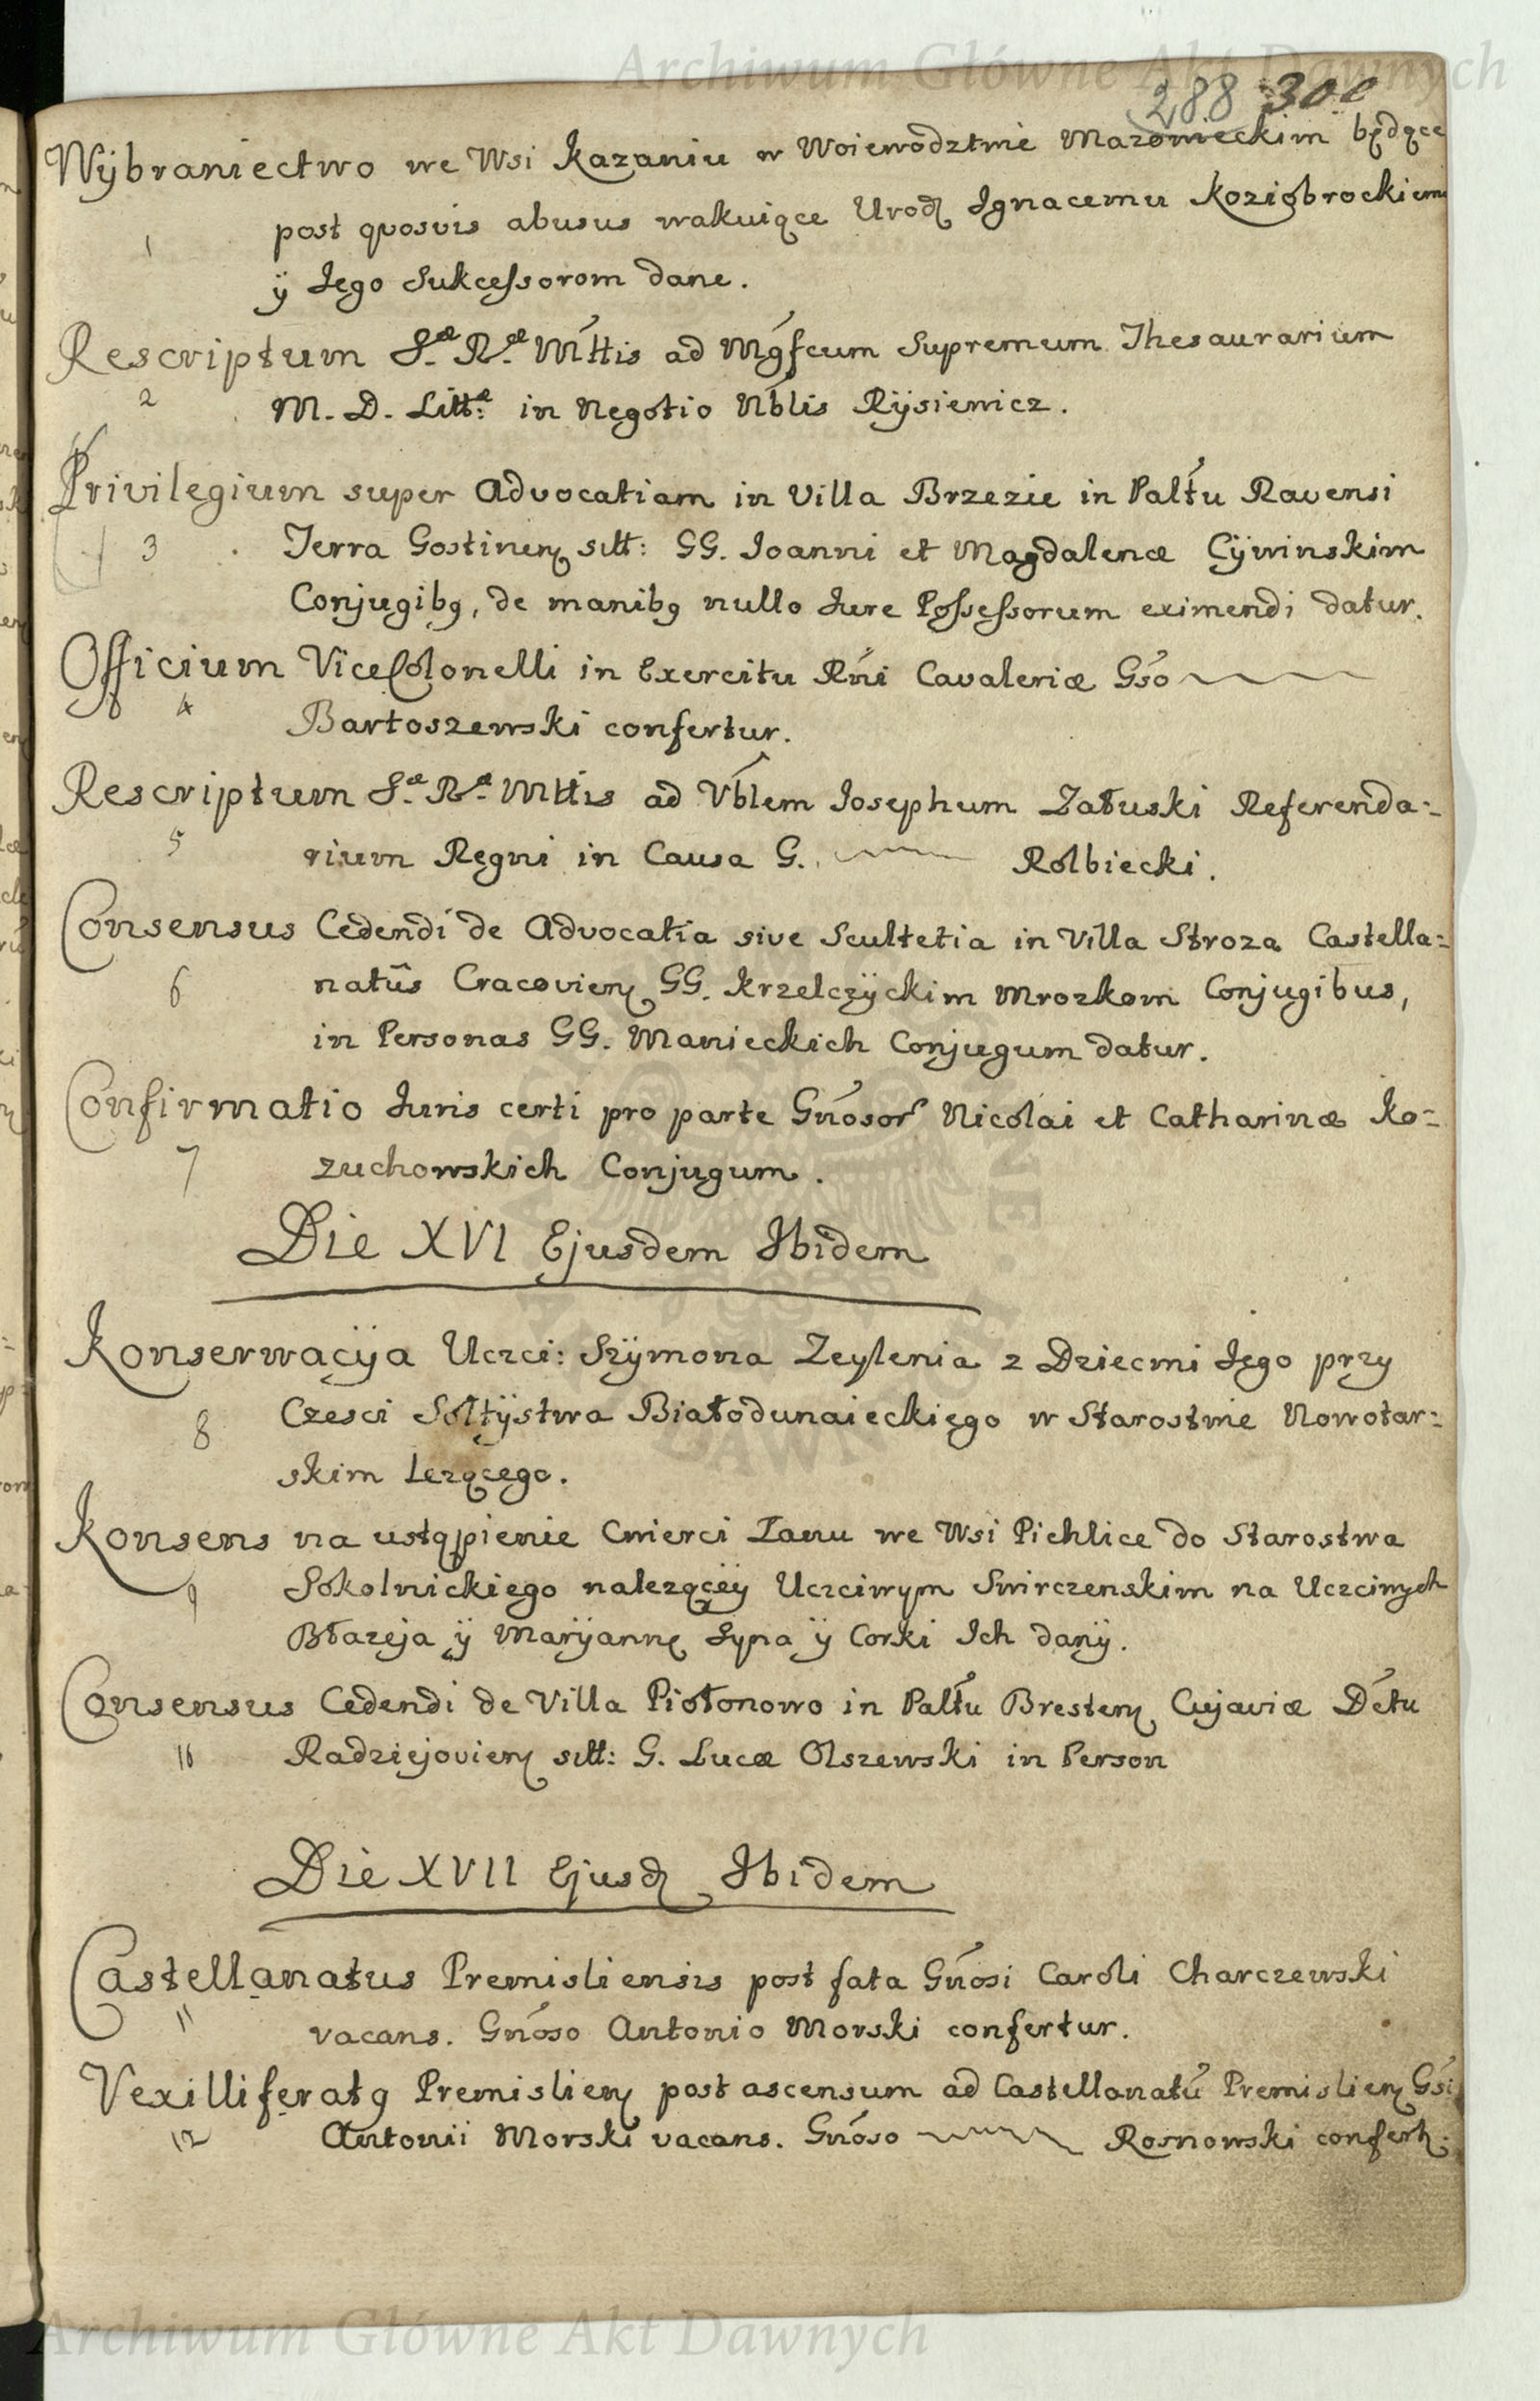 Archiwum Główne Akt Dawnych
288 300
Wybraniectwo we Wsi Kazaniu w Woiewodztwie Mazowieckim będące
1 post quosvis abusus wakuiące Urodz Ignacemu Koziobrockiemu
ÿ Jego Sukcessorom dane.
Rescriptum S.æ R.æ Mttis ad Mgfcum Supremum Thesaurarium
2 M. D. Litt:æ in Negotio Nblis Rÿsiewicz.
Privilegium super Advocatiam in Villa Brzezie in Paltu Ravensi
3 Terra Gostinen sitt: GG. Joanni et Magdalenæ Cÿwinskim
Conjugibq, de manibq nullo Jure Possessorum eximendi datur.
Officium ViceColonelli in Exercitu Rni Cavaleriæ Gso
4 Bartoszewski confertur.
Rescriptum S.æ R.æ Mttis ad Vblem Josephum Załuski Referenda:
5 rium Regni in Causa G. Rolbiecki.
Consensus Cedendi de Advocatia sive Scultetia in Villa Stroza Castella:
6 natûs Cracovien GG. Krzelczÿckim Mrozkom Conjugibus,
in Personas GG. Manieckich Conjugum datur.
Confirmatio Juris certi pro parte Gnosor Nicolai et Catharinæ Ko:
7 zuchowskich Conjugum.
Die XVI Ejusdem Ibidem
Konserwacÿa Uczci: Szÿmona Zeylenia z Dziecmi Jego przy
8 Czesci Sołtÿstwa Białodunaieckiego w Starostwie Nowotar:
skim Lezącego.
Konsens na ustąpienie Cwierci Łanu we Wsi Pichlice do Starostwa
9 Sokolnickiego nalezącÿ Uczciwym Swirczenskim na Uczciwych
Błazeja ÿ Marÿannę Syna ÿ Corki Ich danÿ.
Consensus Cedendi de Villa Piołonowo in Paltu Bresten Cujaviæ Dctu
10 Radziejovien sitt: G. Lucæ Olszewski in Person
Die XVII Ejusd Ibidem
Castellanatus Premisliensis post fata Gnosi Caroli Charczewski
11 vacans. Gnoso Antonio Morski confertur.
Vexilliferatq Premislien post ascensum ad Castellanatu Premislien Gsi
12 Antonii Morski vacans. Gnoso Rosnowski confert.
Archiwum Główne Akt Dawnych